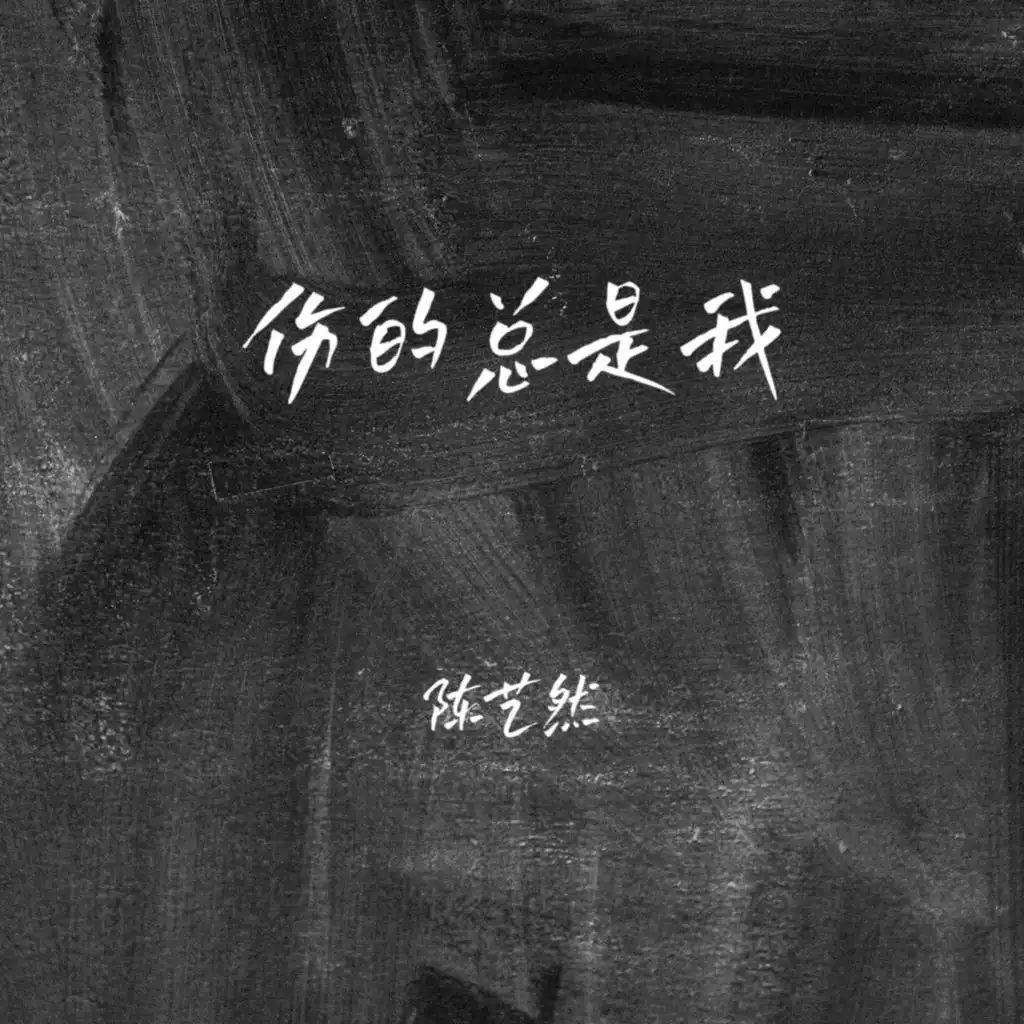 伤的总是我
陈艺然